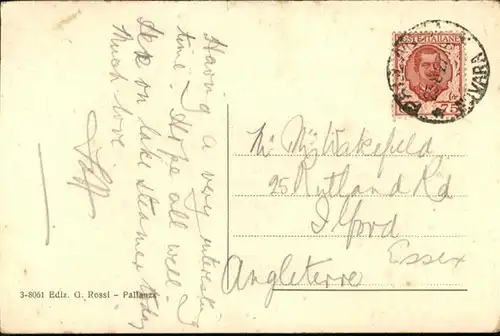 Having a very interesting
time. Hope all well. I
am on lake steamer today
Much love.
POSTE ITALIANE
75
Mr Mrs Wakefield
25 Rutland Rd
Ilford
Essex
Angleterre
3-8061 Ediz. G. Rossi - Pallanza